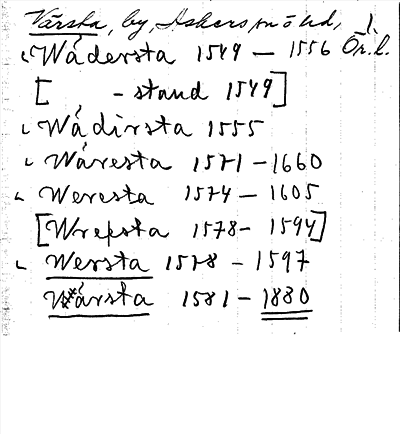 Värsta, by, Askers sn ö hd, 1.
Wådersta 1549 – 1556 Ör. l.
[ - stand 1549]
Wådirsta 1555
Wåresta 1571 – 1660
Weresta 1574 – 1605
[Wrepsta 1578 – 1594]
Wersta 1578 – 1597
Wärsta 1581 – 1880